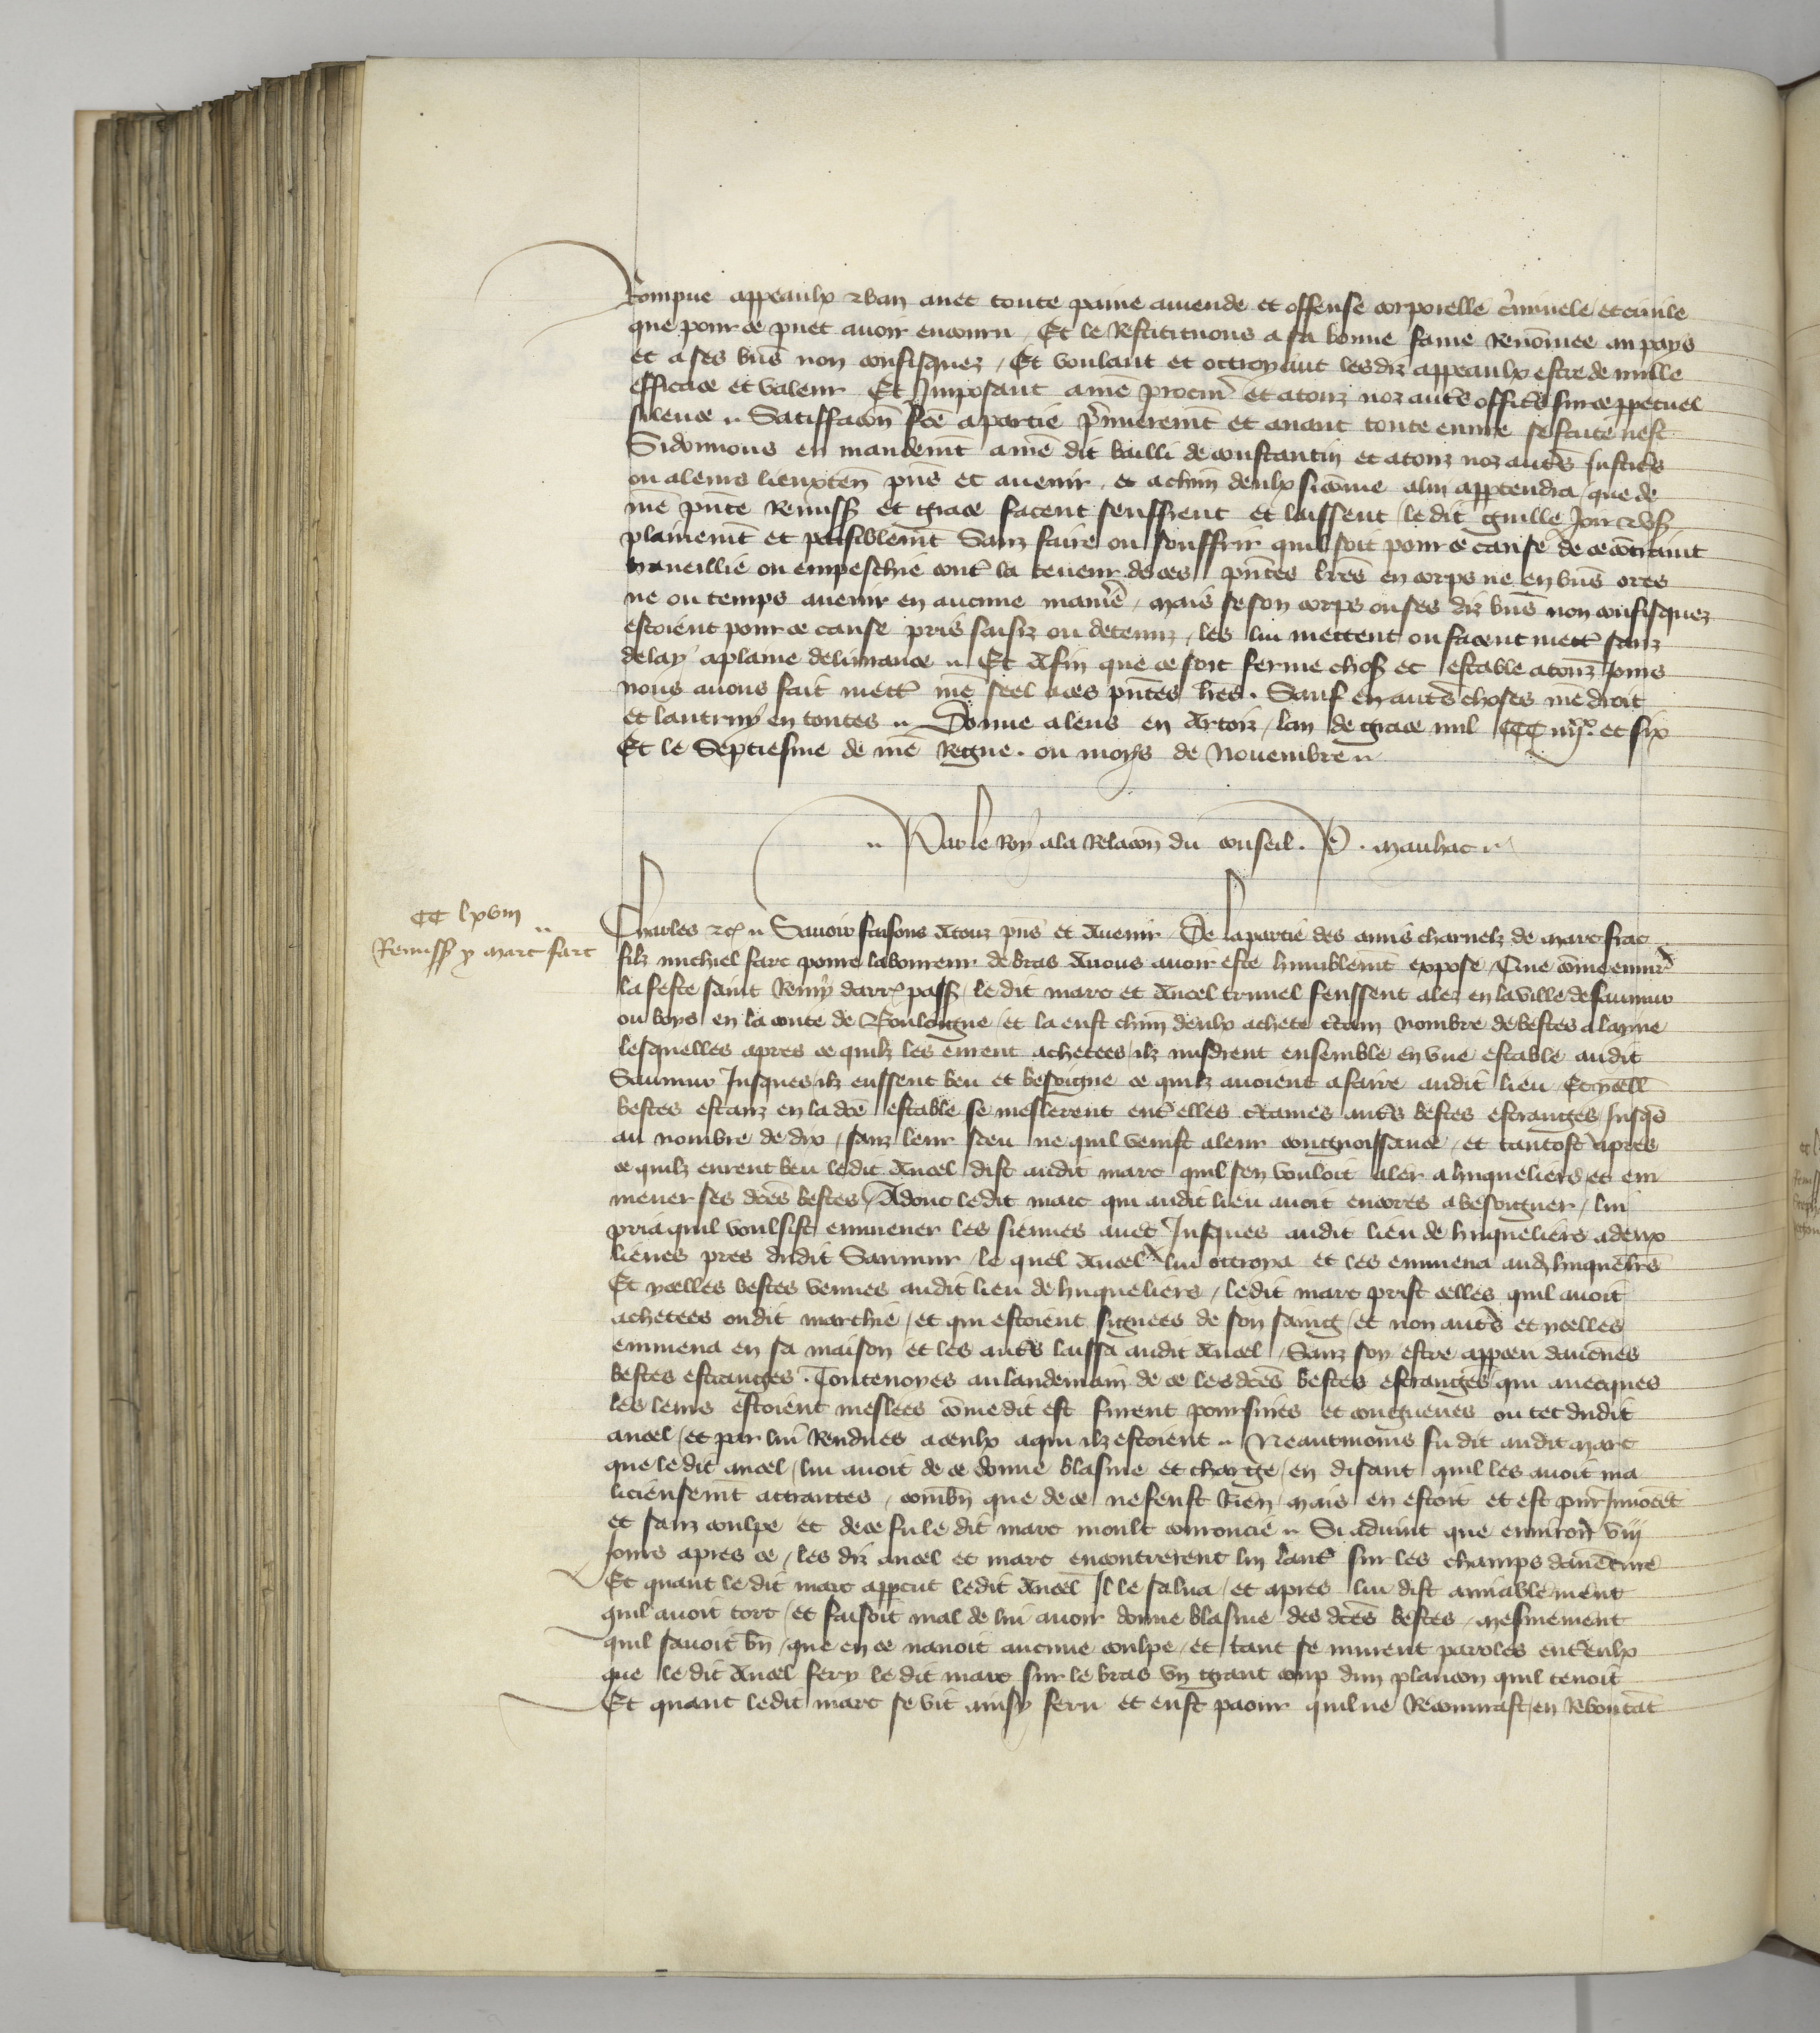 Rompue appeaulx & ban auec toute paine amende et offense corporelle criminele et ciuile
que pour ce puet auoir encouru Et le Restituons a sa bonne fame Renōmee au pays
et a ses biēs non confisquez / Et voulant et ottroyant les diz appeaulx estre de nulle
efficace et valeur Et Imposant a nrē procur̄ et a touz noz autrēs officiērs sur ce ppetuel
silence .. Satisfaccōn fcē a partie p̄mieremt̄ et auant toute euure se faite nest
Si donnons en mandemt̄ a nrē dit bailli de constantin et a touz noz autrēs Justiciērs
ou a leurs lieuxten̄ pn̄s et auenir , et a chūn deulx si cōme a lui apptendra / que de
nrē pn̄te Remiss̄ et grace facent seuffrent et laissent / le dit Guillē Joir & vs̄
plainemt̄ et paisiblemt̄ Sanz faire ou souffrir quil soit pour ce cause de ce cōtraint
traueillie ou empeschie contr̄ la teneur de ces pn̄tes lrēs en corps ne en biēs ores
ne ou temps auenir en aucune manie͛ , mais se son corps ou ses diz biēs non confisquez
estoient pour ce cause pris saisiz ou detenuz , les lui mettent ou facent mettr̄ sanz
delay a plaine deliurance .. Et Afin que ce soit ferme chos̄ et estable a touz Jours
nous auons fait mettr̄ nrē seel a ces pn̄tes lrēs . Sauf en autrēs choses nrē droit
et lautruy en toutes .. Donne a lens en Artoiz / lan de grace mil CCC iiijxx et six
Et le Septiesme de nrē Regne . ou moys de Nouembre ..
.. Par le Roy a la Relacōn du conseil . P . Manhac ..
CC lxviii
Remiss̄ p Marc farc
Charles &c .. Sauoir faisons A touz pn̄s et Auenir De la partie des amis charnelz de Marc frac
filz michiel farc poure laboureur de bras A nous auoir este humblemt̄ expose / Que cōme enuirō
la feste saint Remy darr̄ pass̄ le dit marc et Ancel trunel feussent alez en la ville de saumur
ou boys en la conte de Boulongne / et la eust chūn deulx achete c̄tain nombre de bestes a layne
lesquelles apres ce quilz les eurent achetees / ilz misdrent ensemble en vne estable audit
Saumur Jusques ilz eussent beu et besoigne ce quilz auoient a faire audit lieu Et ycell̄
bestes estanz en la dcē estable se meslerent entr̄ elles c̄taines autrēs bestes estranges / Jusqs̄
au nombre de dix , sanz leur sceu ne quil venist a leur congnoissance , et tantost apres
ce quilz eurent beu ledit Ancel dist audit marc quil sen vouloit aler a huqueliers et em
mener ses dcēs bestes / Adonc ledit marc qui audit lieu auoit encores a besoigner / lui
pria quil voulsist emmener les siennes auec Jusques audit lieu de huqueliers a deux
lieues pres dudit Saumur / le quel Ancel lui ottroya et les emmena aud huquelir̄s
Et ycelles bestes venues audit lieu de huqueliers / ledit marc prist celles quil auoit
achetees oudit marchie / et qui estoient signees de son saing / et non autrēs et ycelles
emmena en sa maison et les autrēs laissa audit Ancel / Sanz soy estre apperceu daucunes
bestes estranges . Toutesuoyes au landemain de ce les dcēs bestes estranges qui auecques
les leurs estoient meslees cōme dit est furent poursuies et congneues ou tec dudit
ancel / et par lui Rendues a ceulx a qui ilz estoient .. Neantmoins fu dit audit marc
que ledit ancel / lui auoit de ce donne blasme et charge / en disant quil les auoit ma
licieusemt̄ attraites , combn̄ que de ce ne sceust Rien mais en estoit et est pur Innocēt
et sanz coulpe et de ce fu le dit marc moult courroucie .. Si aduint que enuiron viij
jours apres ce / les diz ancel et marc encontrerent lun lautr̄ sur les champs dauēture
Et quant le dit marc appceut ledit Ancel Il le salua / et apres lui dist amiablement
quil auoit tort / et faisoit mal de lui auoir donne blasme des dcēs bestes , mesmement
quil sauoit bn̄ / que en ce nauoit aucune coulpe , et tant se murent paroles entr̄eulx
que le dit Ancel fery le dit marc sur le bras vn grant coup dun plancon quil tenoit
Et quant ledit marc se vit ainsy feru et eust paour quil ne Recouurast / en Reboutāt